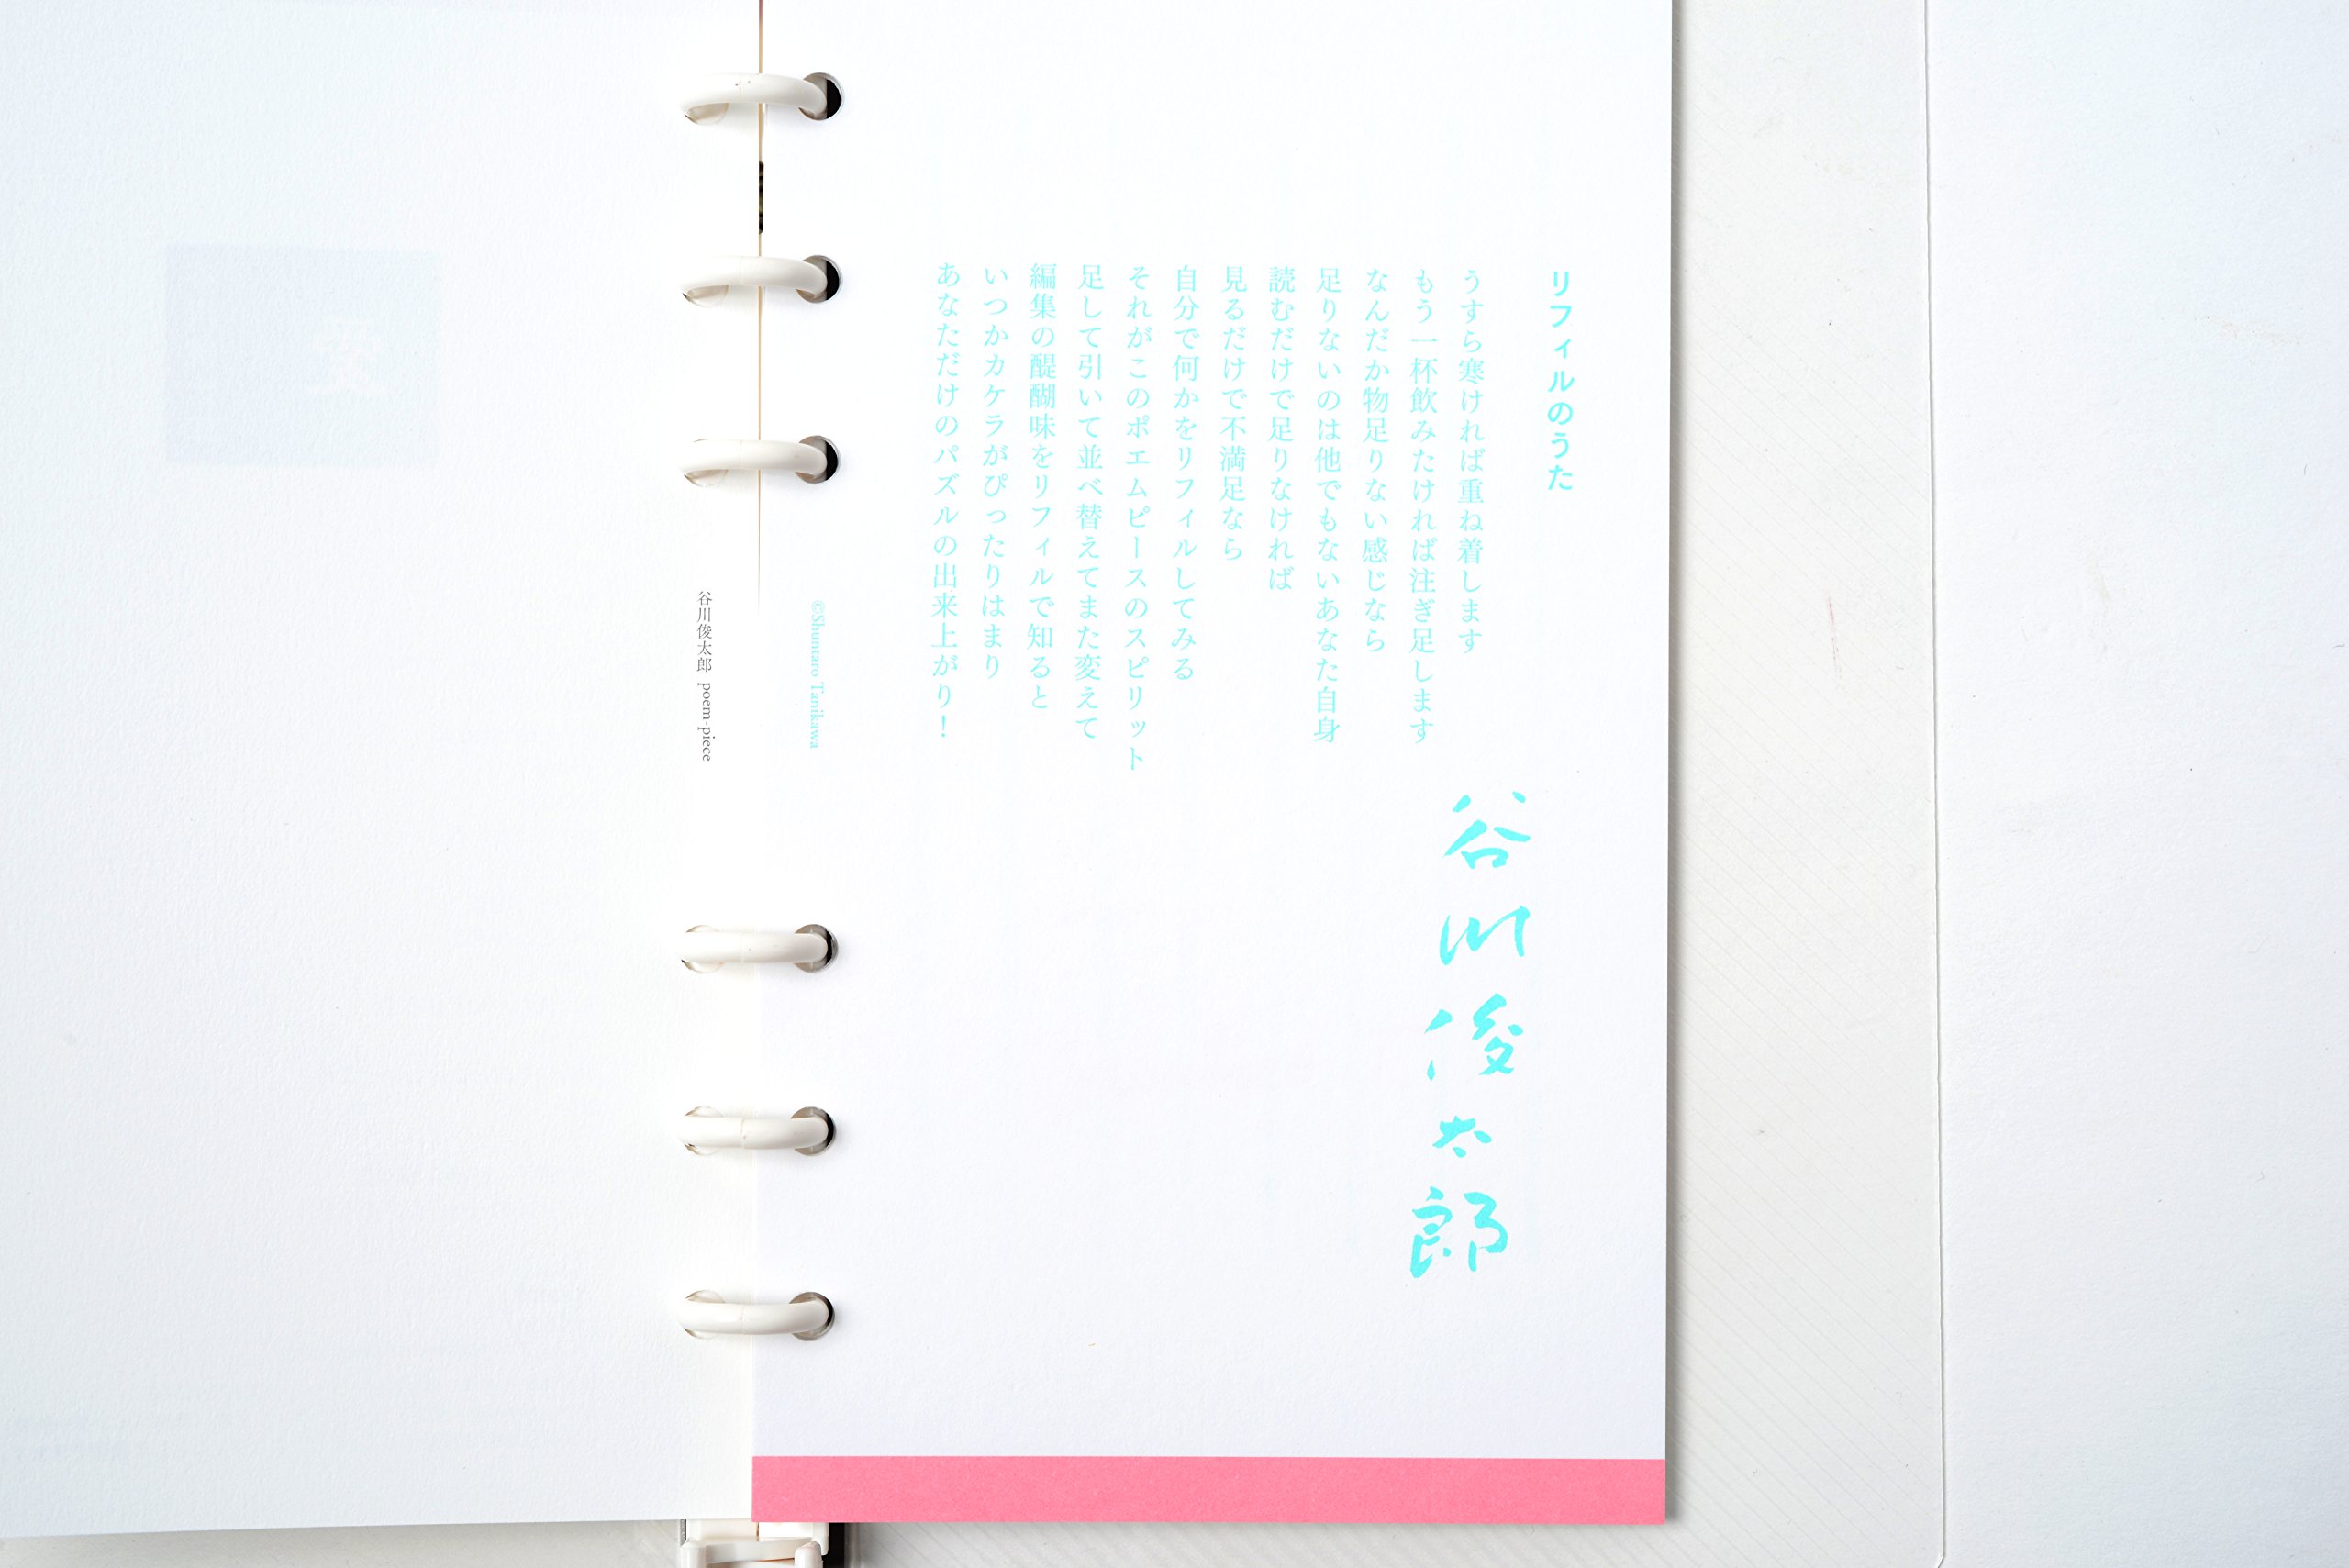 リフィルのうた
うすら寒ければ重ね着します
もう一杯飲みたければ注ぎ足します
なんだか物足りない感じなら
足りないのは他でもないあなた自身
読むだけで足りなければ
見るだけで不満足なら
自分で何かをリフィルしてみる
それがこのポエムピースのスピリット
足して引いて並べ替えてまた変えて
編集の醍醐味をリフィルで知ると
いつかカケラがぴったりはまり
あなただけのパズルの出来上がり！
谷川俊太郎
©Shuntaro Tanikawa
谷川俊太郎 poem-piece